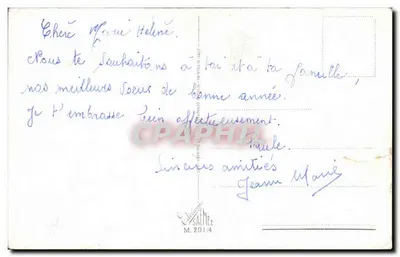 Chère Marie Helène.
Nous te souhaitons à toi et à ta famille,
nos meilleurs voeux de bonne année.
Je t'embrasse bien affectueusement.
Paule.
Sincères amitiés
Jeanne Marie
CPAPHIL
M. 201/4